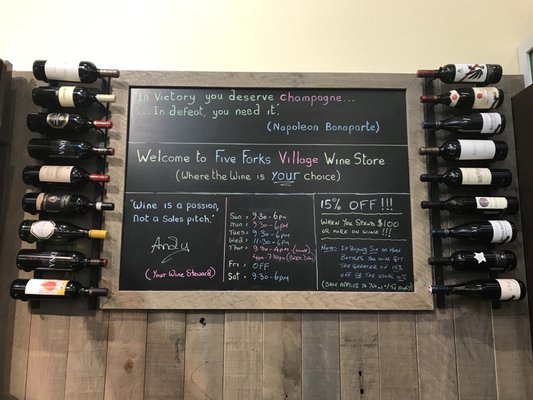 "In Victory you deserve champagne...
...In defeat, you need it".
(Napoleon Bonaparte)
Welcome to Five Forks Village Wine Store
(Where the Wine is your choice)
"Wine is a passion,
not a Sales pitch."
Andy
(Your Wine Steward)
Sun : 9:30-6pm
Mon : 9:30-6pm
Tues : 9:30-6pm
Wed : 11:30-6pm
Thur : 9:30-4pm (Wine)
4pm-7:30pm (Beer Den)
Fri : OFF
Sat : 9:30-6pm
15% OFF !!!
When You Spend $100
or more on Wine !!!
Note: If Buying Six or more
Bottles You will get
the Greater of 15%
off or the usual 10%
(Sale applies to 750ml